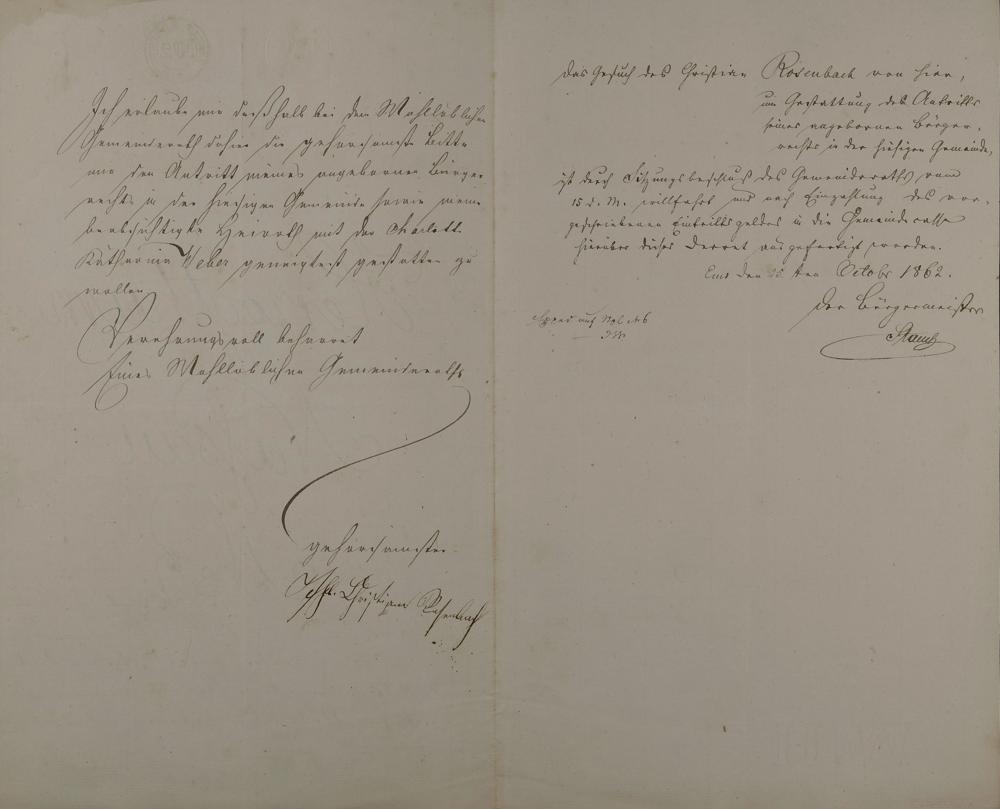 Ich erlaube mir deßhalb bei dem Wohllöblichen
Gemeinderath dahier die gehorsamste Bitte
mir den Antritt meines angebornen Bürger
rechts in der hiesigen Gemeinde sowie meine
beabsichtigte Heirath mit der Charlotte
Katharina Weber geneigtest gestatten zu
wollen.
Verehrungsvoll beharret
Eines Wohllöblichen Gemeinderaths
gehorsamster
Christian Rosenbach
Das Gesuch des Christian Rosenbach von hier,
um Gestattung des Antritts
seines angebornen Bürger-
rechts in der hiesigen Gemeinde,
ist durch Sitzungsbeschluß des Gemeinderaths vom
15 d. M. willfahrt und nach Einzahlung des vor-
geschriebenen Eintrittsgeldes in die Gemeindecasse
hierüber dieses Decret ausgefertigt worden.
Ems den ten October 1862.
Der Bürgermeister